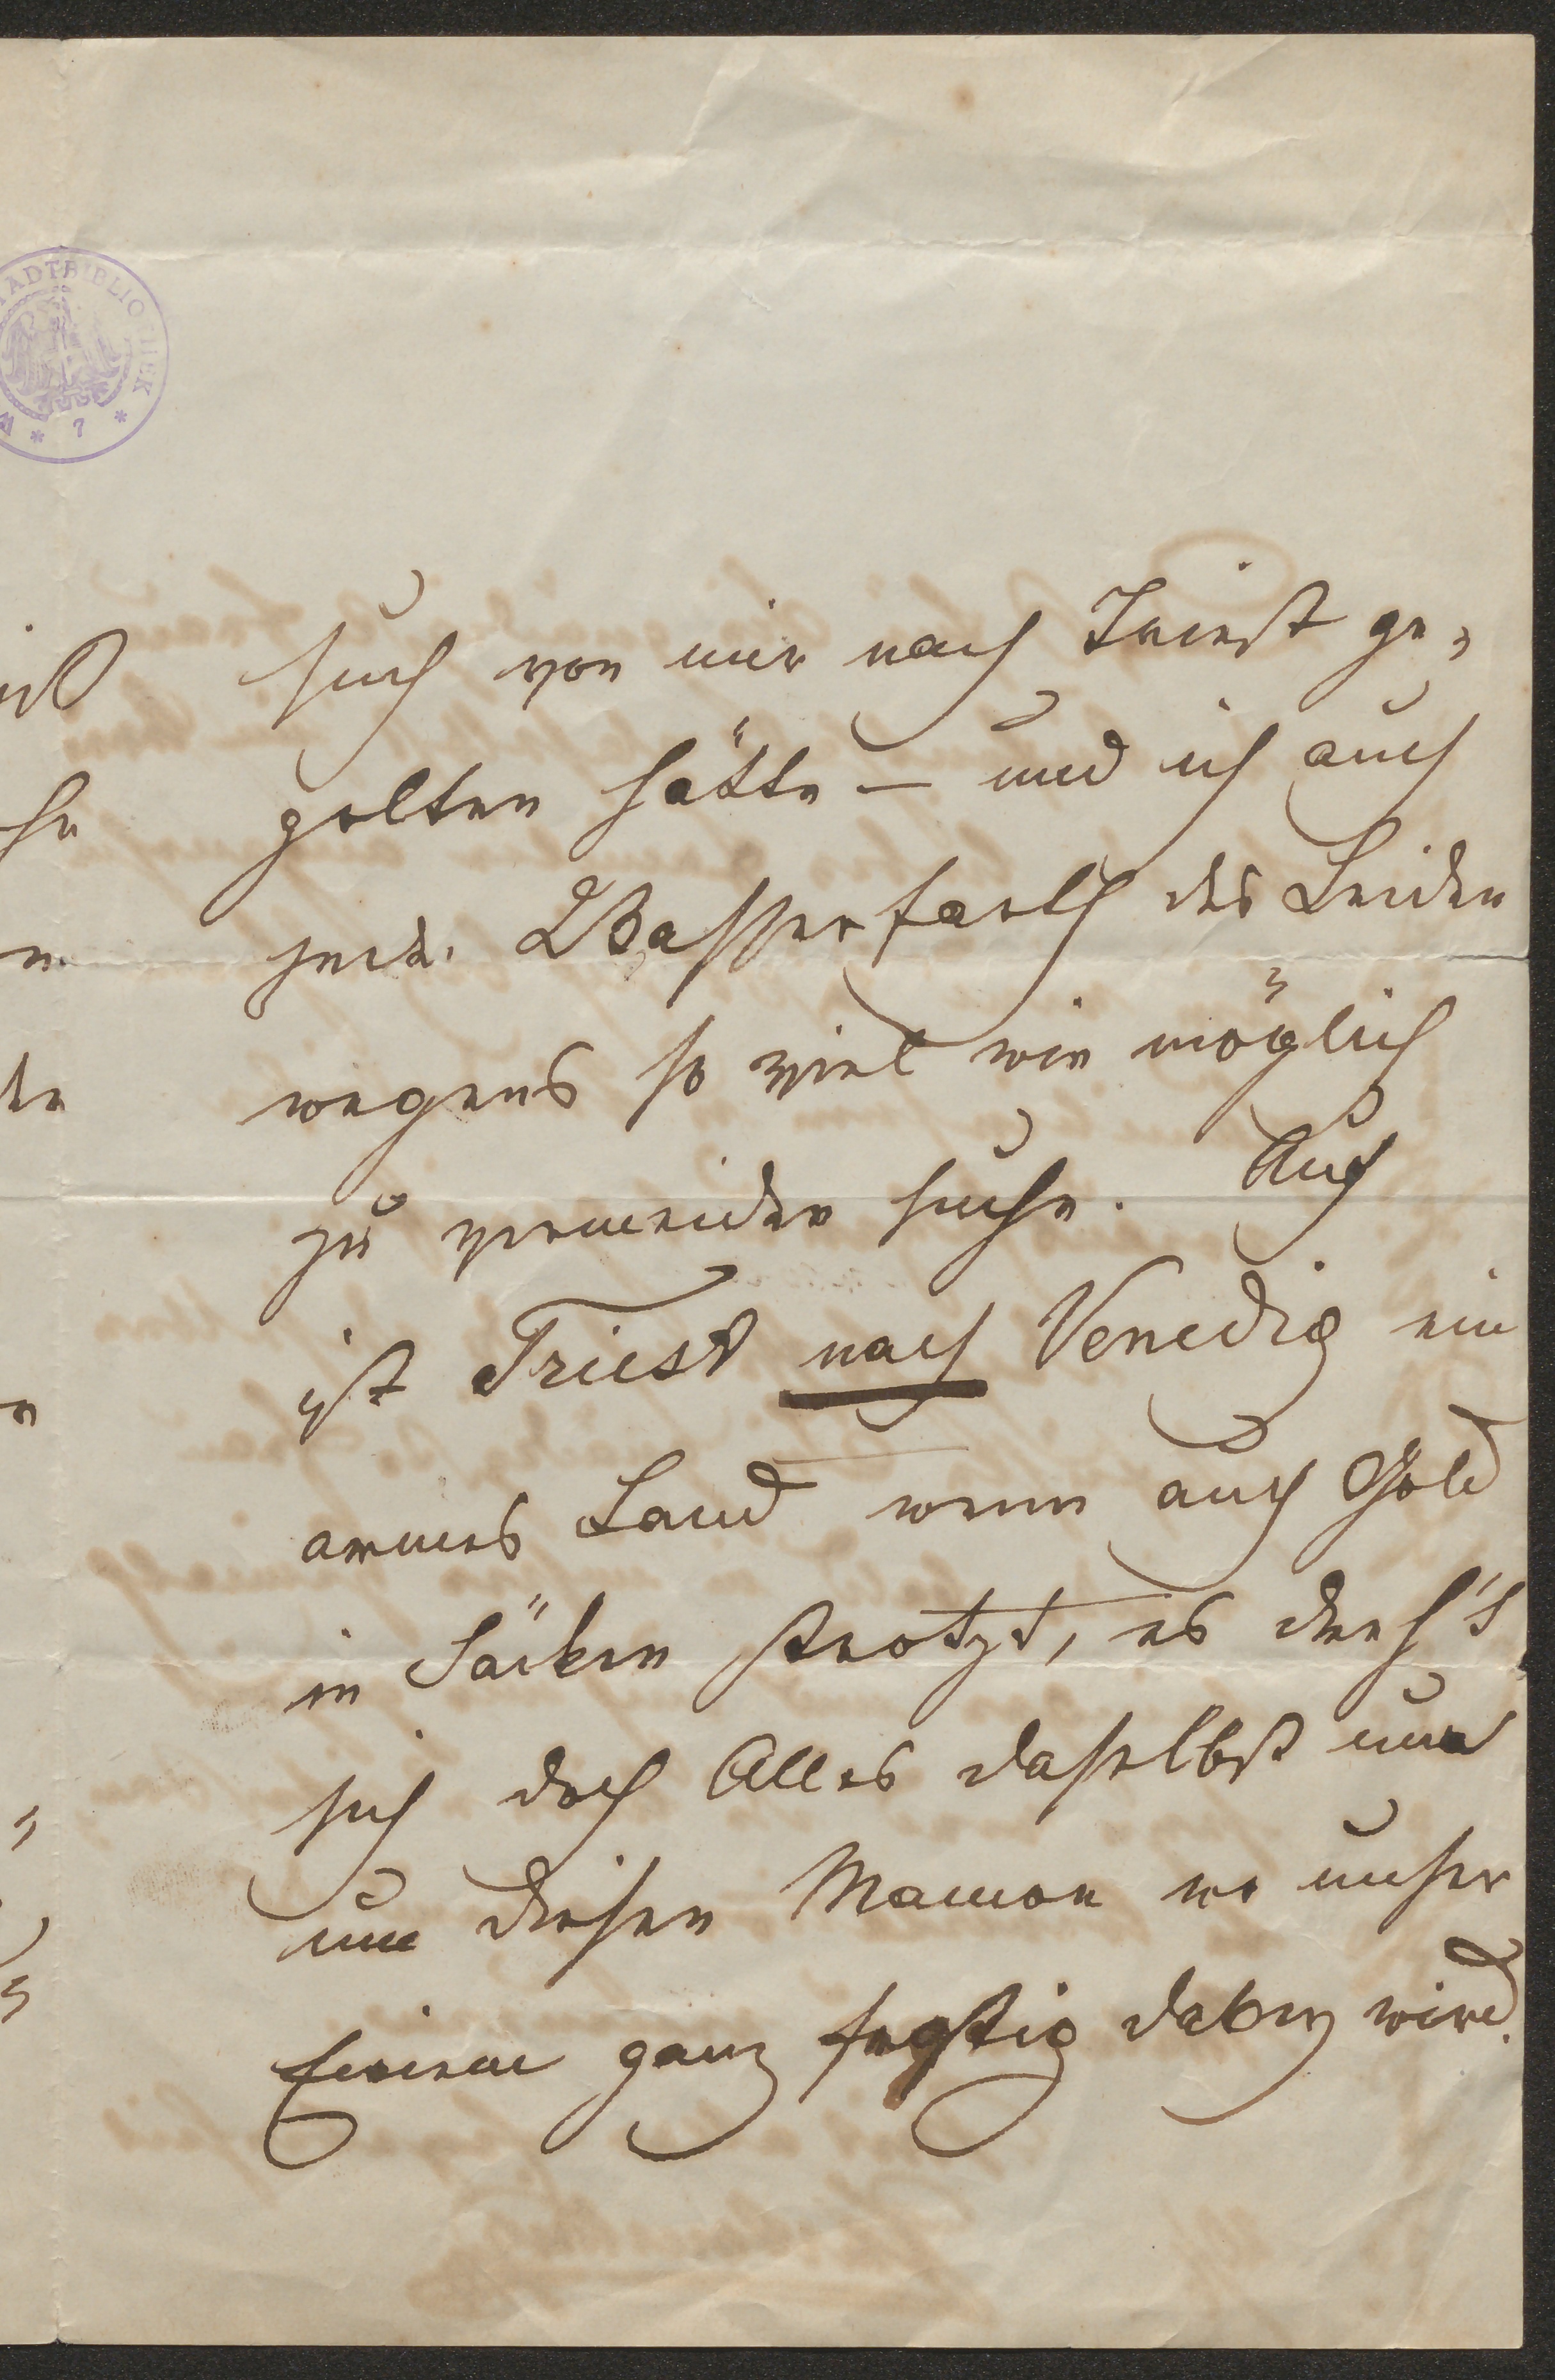 STADTBIBLIOTHEK
* 7 *
such von mir nach Triest ge-
golten hätte – und ich auch
jede Wasserfarth des Leiden
wegens so viel wie möglich
zu vermeiden suche. Auch
ist Triest nach Venedig ein
armes Land wenn auch Gold
in Säcken strotzt, es dreh't
sich doch Alles daselbst nur
um diesen Mamon wo unser
Einem ganz dabey wird.